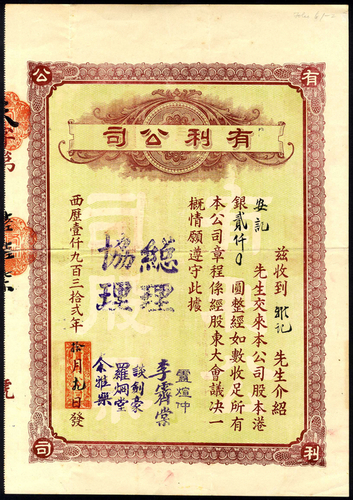 有利公司
有
利
公
司
茲收到鄧記先生介紹
安記先生交來本公司股本港
銀貳仟0圓整經如數收足所有
本公司章程係經股東大會議决一
概情願遵守此據
總理
協理
李霽棠
羅炯堂
余雅樂
西歷壹仟九百三拾弍年
拾月九日發